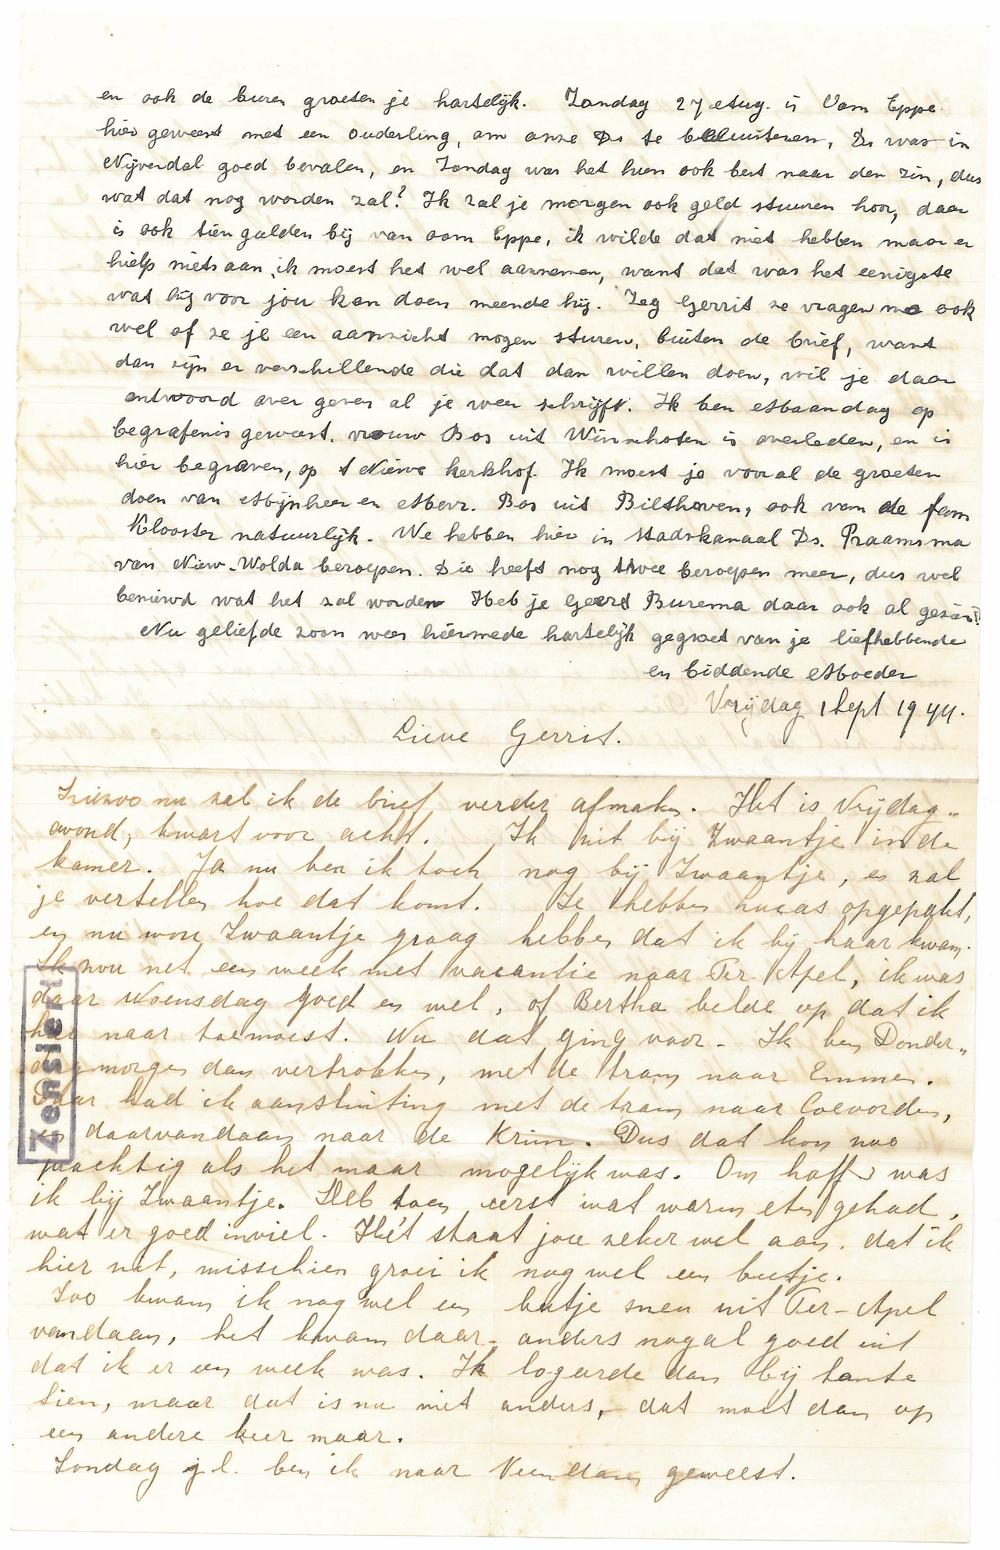 en ook de buren groeten je hartelijk. Zondag 27 Aug. is Oom Eppe
hier geweest met een ouderling, om onze Ds te beluisteren, Ds was in
Nijverdal goed bevalen, en Zondag was het hun ook best naar den zin, dus
wat dat nog worden zal? Ik zal je morgen ook geld stuuren hoor, daar
is ook tien gulden bij van oom Eppe, ik wilde dat niet hebben maar er
hielp niets aan, ik moest het wel aannemen, want dat was het eenigste
wat hij voor jou kon doen meende hij. Zeg Gerrit ze vragen me ook
wel of ze je een aanzicht mogen sturen, buiten de brief, want
dan zijn er verschillende die dat dan willen doen, wil je daar
antwoord over geven al je weer schrijft. Ik ben Maandag op
begrafenis geweest. vrouw Bos uit Winschoten is overleden, en is
hier begraven, op t Nieuwe kerkhof. Ik moest je vooral de groeten
doen van Mijnheer en Mevr. Bos uit Bilthoven, ook van de fam
Klooster natuurlijk. We hebben hier in Stadskanaal Ds. Praamsma
van Nieuw-Wolda beroepen. Die heeft nog twee beroepen meer, dus wel
benieuwd wat het zal worden Heb je Geert Burema daar ook al gezien?
Nu geliefde zoon wees hiermede hartelijk gegroet van je liefhebbende
en biddende Moeder
Vrijdag 1 Sept 1944.
Lieve Gerrit.
Ziezoo nu zal ik de brief verder afmaken. Het is Vrijdag-
avond, kwart voor acht. Ik zit bij Zwaantje in de
kamer. Ja nu ben ik toch nog bij Zwaantje, en zal
je vertellen hoe dat komt. Ze hebben Lucas opgepakt,
en nu wou Zwaantje graag hebben dat ik bij haar kwam.
Ik zou net een week met vacantie naar Ter Apel, ik was
daar Woensdag goed en wel, of Bertha belde op dat ik
hier naar toe moest. Nu dat ging voor. Ik ben Donder-
dagmorgen dan vertrokken, met de tram naar Emmen.
Daar had ik aansluiting met de tram naar Coevorden,
en daarvandaan naar de Krim. Dus dat kon zoo
prachtig als het maar mogelijk was. Om half 3 was
ik bij Zwaantje. Heb toen eerst wat warm eten gehad,
wat er goed inviel. Hét staat jou zeker wel aan. dat ik
hier zit, misschien groei ik nog wel een beetje.
Zoo kwam ik nog wel een beetje sneu uit Ter-Apel
vandaan, het kwam daar anders nogal goed uit
dat ik er een week was. Ik logeerde dan bij tante
Sien, maar dat is nu niet anders, dat moet dan op
een andere keer maar.
Zondag j.l. ben ik naar Veendam geweest.
Zensiert